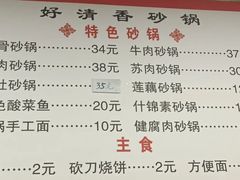 好清香砂锅
特色砂锅
骨砂锅 34元 牛肉砂锅
肉砂锅 38元 苏肉砂锅
肚砂锅 35元 莲藕砂锅
色酸菜鱼 20元 什锦素砂锅
锅手工面 10元 健腐肉砂锅
主食
2元 砍刀烧饼 2元 方便面